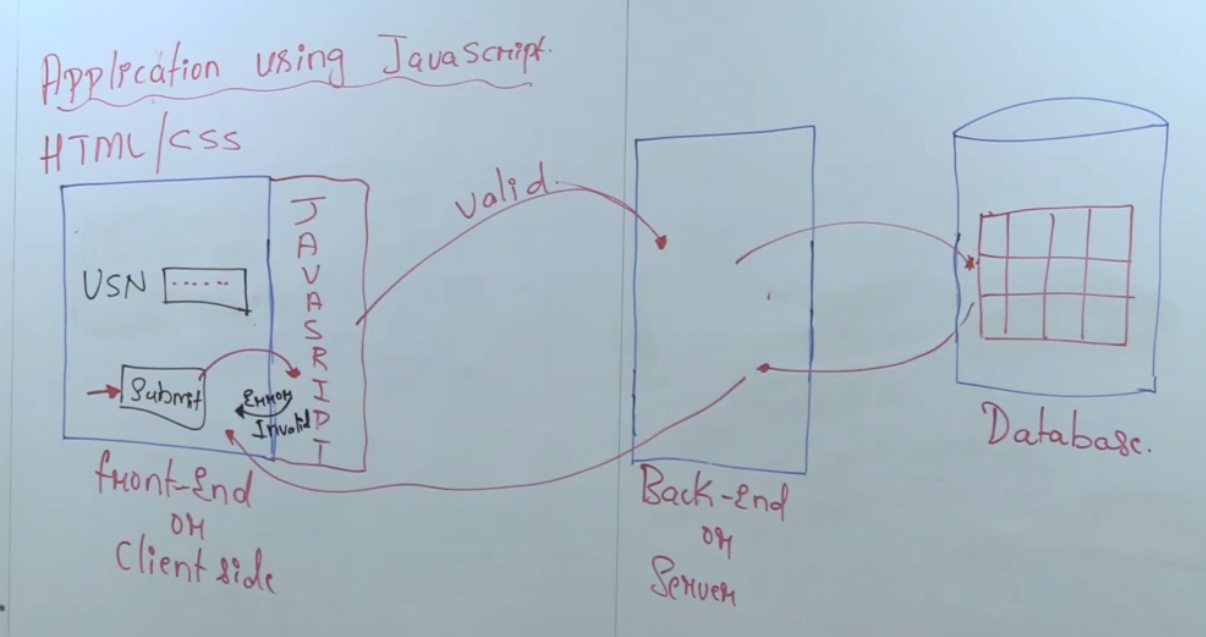 Application using JavaScript.
HTML/CSS
USN ......
Submit
Error
Invalid
JAVASRIPT
Valid.
front-End
or
Client side
Back-End
or
Server
Database.